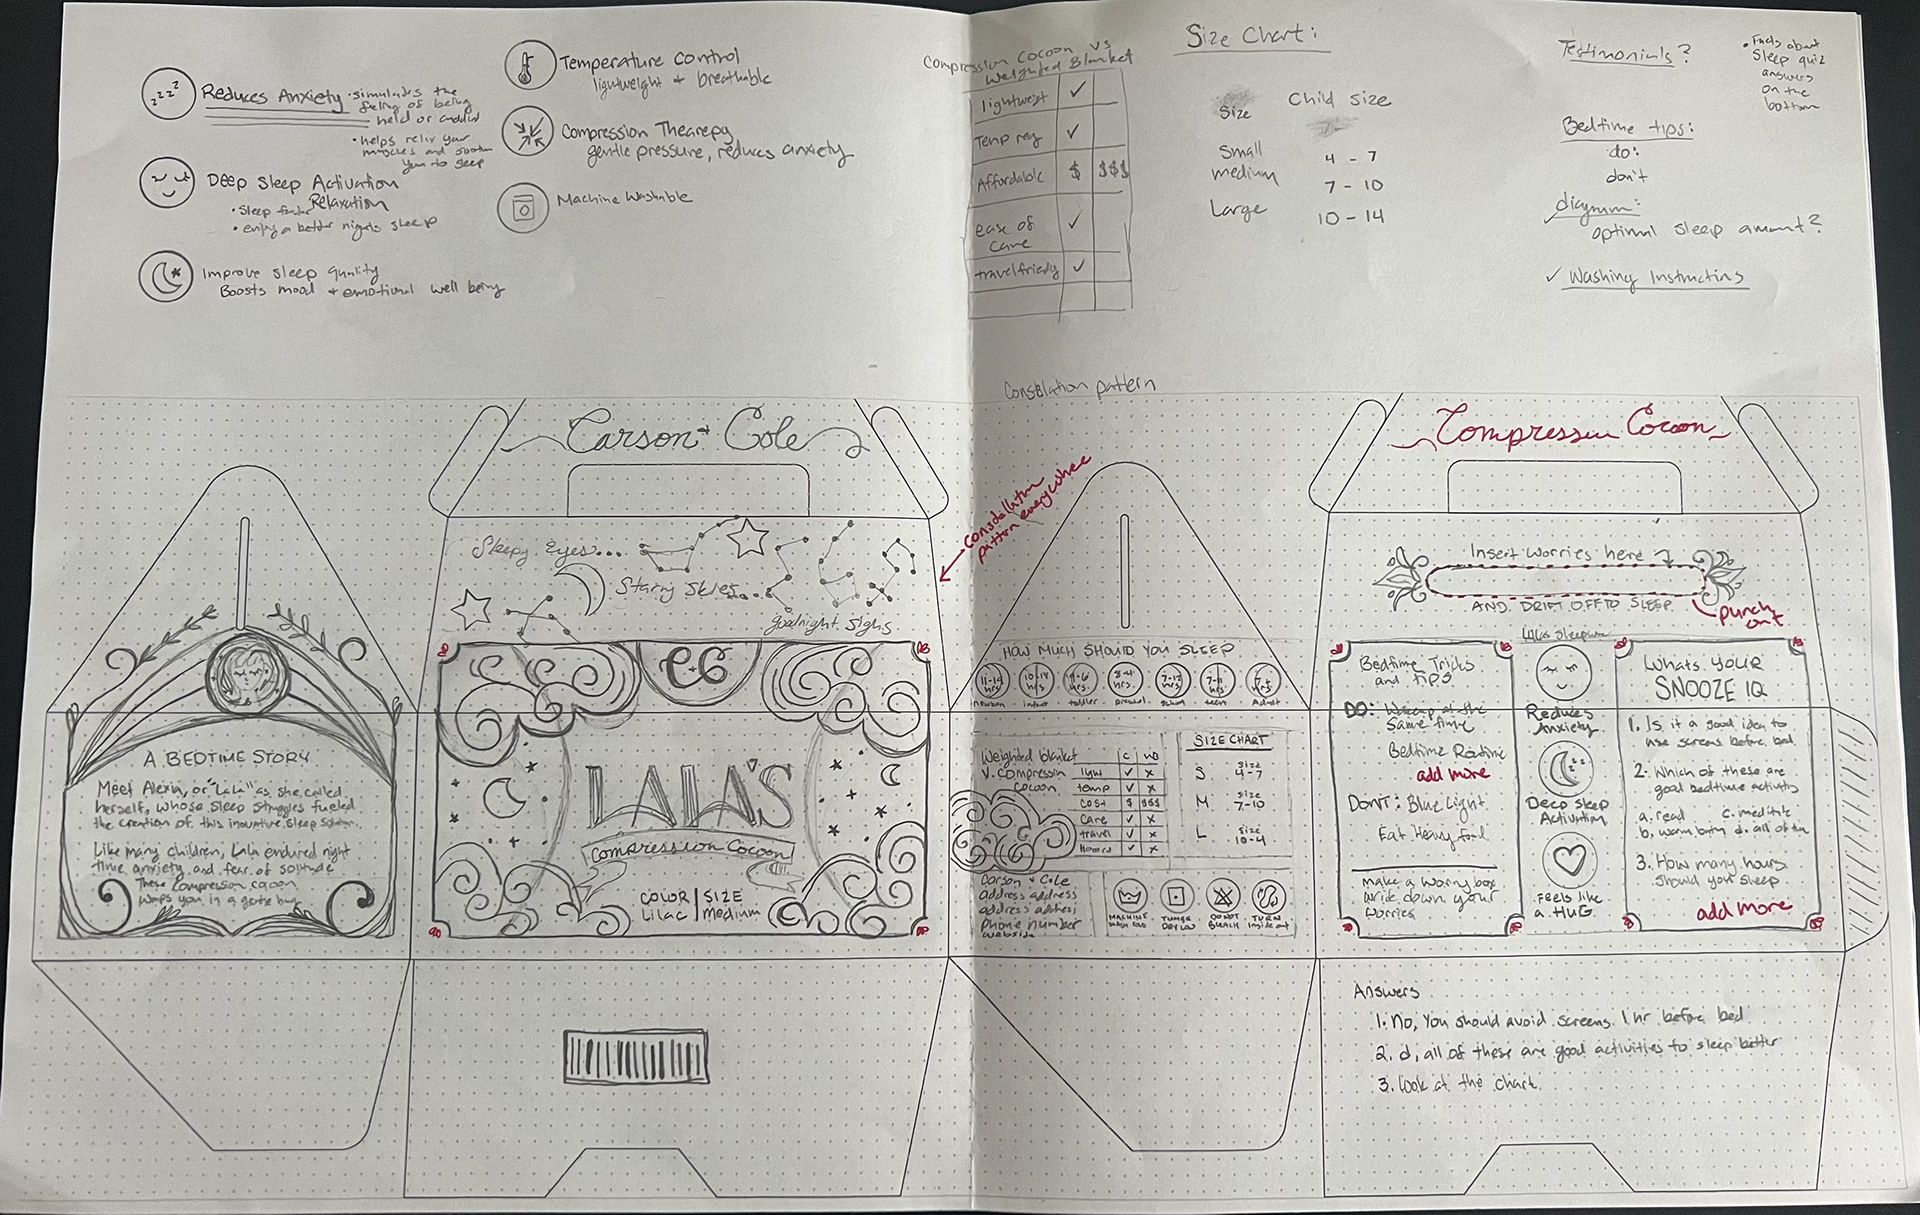 Reduces Anxiety
• simulates the
feeling of being
held or
• helps
muscles and
you to sleep
Deep Sleep Activation
Relaxation
• Sleep
• enjoy a better nights sleep
Improve Sleep Quality
Boosts mood + emotional well being
Temperature Control
lightweight + breathable
Compression Thearepy
gentle pressure, reduces anxiety
Machine Washable
Compression Cocoon vs
Weighted Blanket
lightweight ✓
Temp reg ✓
Affordable $ $$$
ease of ✓
care
travel friendly ✓
Size Chart:
Size Child size
Small 4 - 7
medium 7 - 10
Large 10 - 14
Testimonials?
• Facts about
Sleep quiz
answers
on the
bottom
Bedtime tips:
do:
don't
diagram:
optimal sleep amount?
✓ Washing Instructins
pattern
Carson + Cole
Sleepy Eyes...
Starry Skies...
goodnight sighs
pattern everywhere
A BEDTIME STORY
Meet Alexia, or "LaLa" as she called
herself, whose sleep struggles fueled
the creation of this inovative sleep
Like many children, Lala endured night
time anxiety and fear of solitude
These compression cocoon
wraps you in a gentle hug
C+C
LALA'S
Compression Cocoon
COLOR | SIZE
Lilac | Medium
HOW MUCH SHOULD YOU SLEEP
11-14 hrs.
newborn infant toddler school teen Adult
Weighted blanket
V. Compression
Cocoon
C WB
light ✓ x
temp ✓ x
cost $ $$$
Care ✓ x
travel ✓ x
✓ x
SIZE CHART
S size 4-7
M size 7-10
L size 10-4
Carson + Cole
address address
address address
phone number
website
MACHINE WASH COLD
TUMBLE DRY LOW
DO NOT BLEACH
TURN inside out
Compression Cocoon
Insert worries here
AND DRIFT OFF TO SLEEP
punch
out
Bedtime Tricks
and tips
DO: same time
Bedtime Routine
add more
DONT: Blue Light
Eat Heavy food
make a worry box
write down your
worries
Reduces
Anxiety
Deep Sleep
Activation
Feels like
a HUG
Whats YOUR
SNOOZE IQ
1. Is it a good idea to
use screens before bed
2. Which of these are
good bedtime activitys
a. read c. meditate
b. warm bath d. all of
3. How many hours
should you sleep
add more
Answers
1. No, You should avoid screens 1 hr before bed
2. d, all of these are good activities to sleep better
3. Look at the chart.